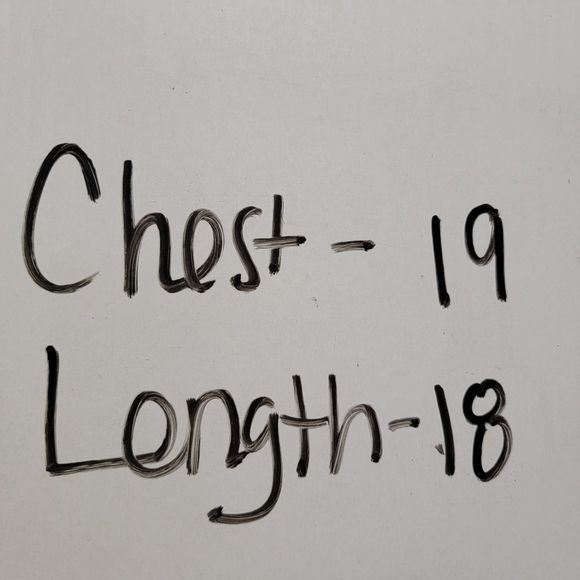 Chest - 19
Length - 18